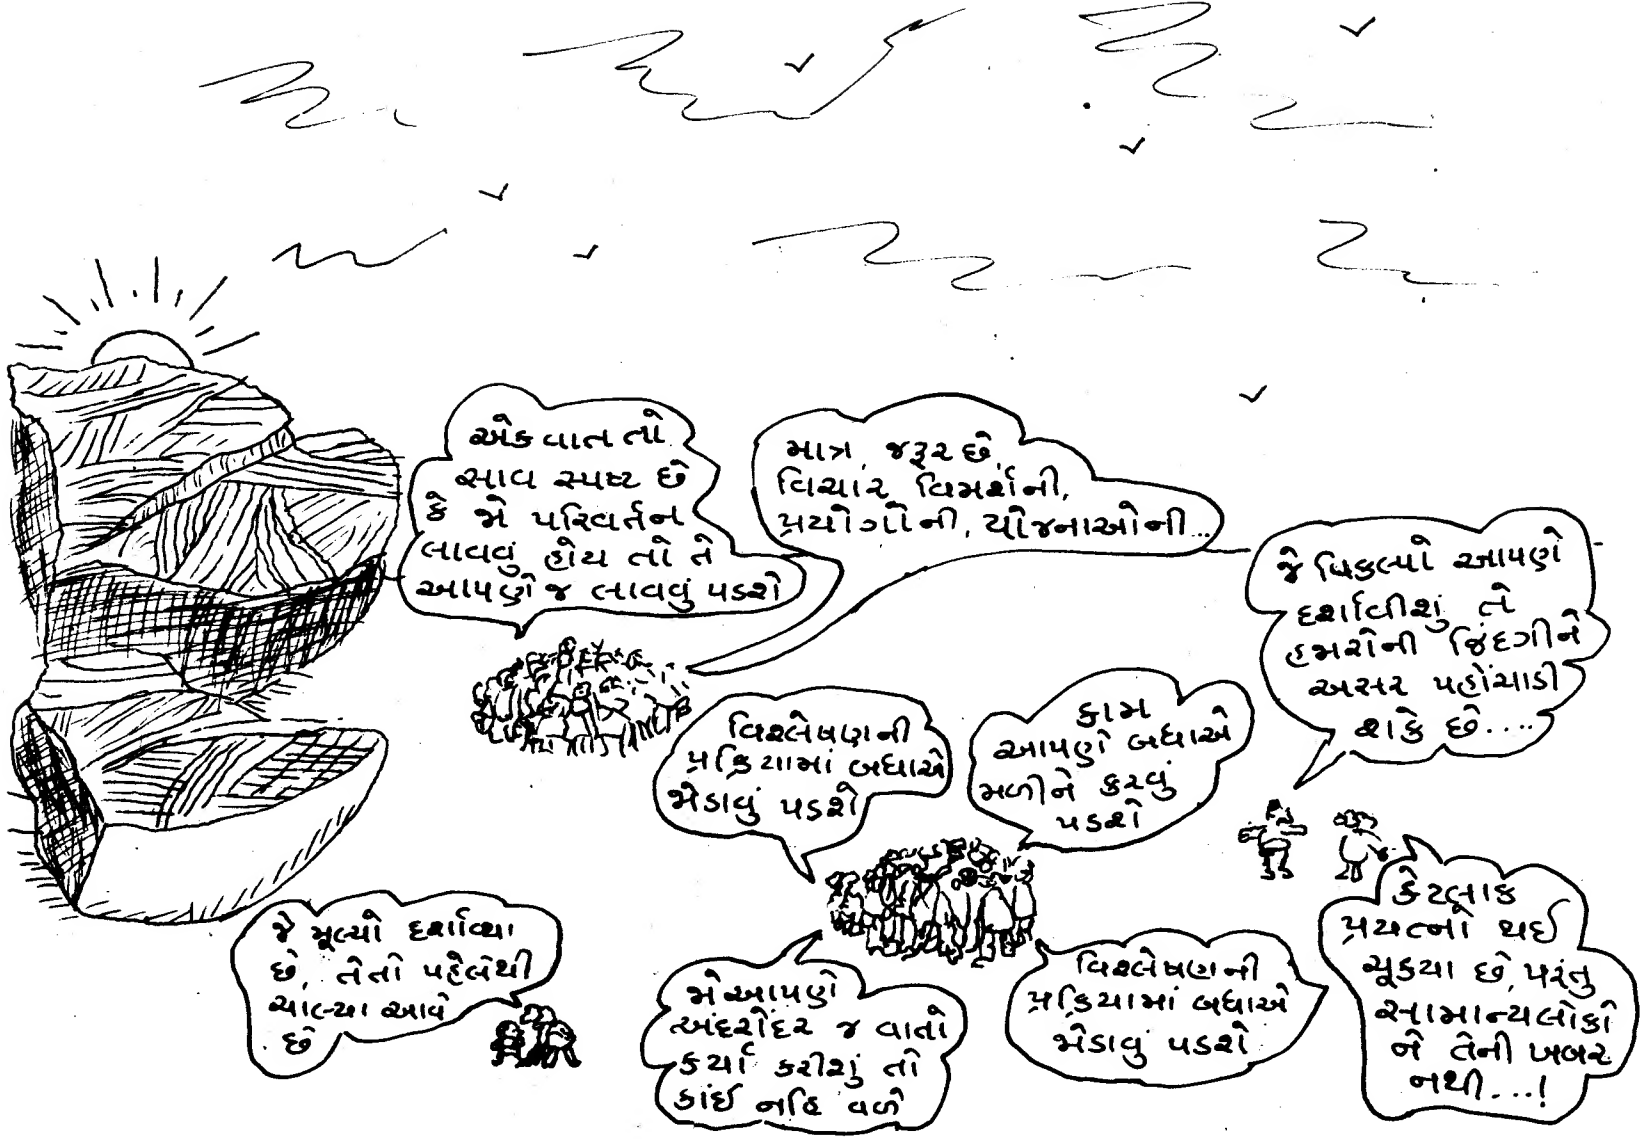 એક વાત તો
સાવ સ્પષ્ટ છે
કે જો પરિવર્તન
લાવવું હોય તો તે
આપણે જ લાવવું પડશે
માત્ર જરૂર છે,
વિચાર, વિમર્શની,
પ્રયોગોની, યોજનાઓની...
જે વિકલ્પો આપણે
દર્શાવીશું તે
હમારોની જિંદગીને
અસર પહોંચાડી
શકે છે....
વિશ્લેષણની
પ્રક્રિયામાં બધાએ
જોડાવું પડશે
કામ
આપણે બધાએ
મળીને કરવું
પડશે
જે મૂલ્યો દર્શાવ્યા
છે, તેતો પહેલેથી
ચાલ્યા આવે
છે
જો આપણે
અંદરોંદર જ વાતો
કર્યા કરીશું તો
કાંઈ નહિ વળે
વિશ્લેષણની
પ્રક્રિયામાં બધાએ
જોડાવું પડશે
કેટલાક
પ્રયત્નો થઈ
ચૂકયા છે, પરંતુ
સામાન્યલોકો
ને તેની ખબર
નથી...!